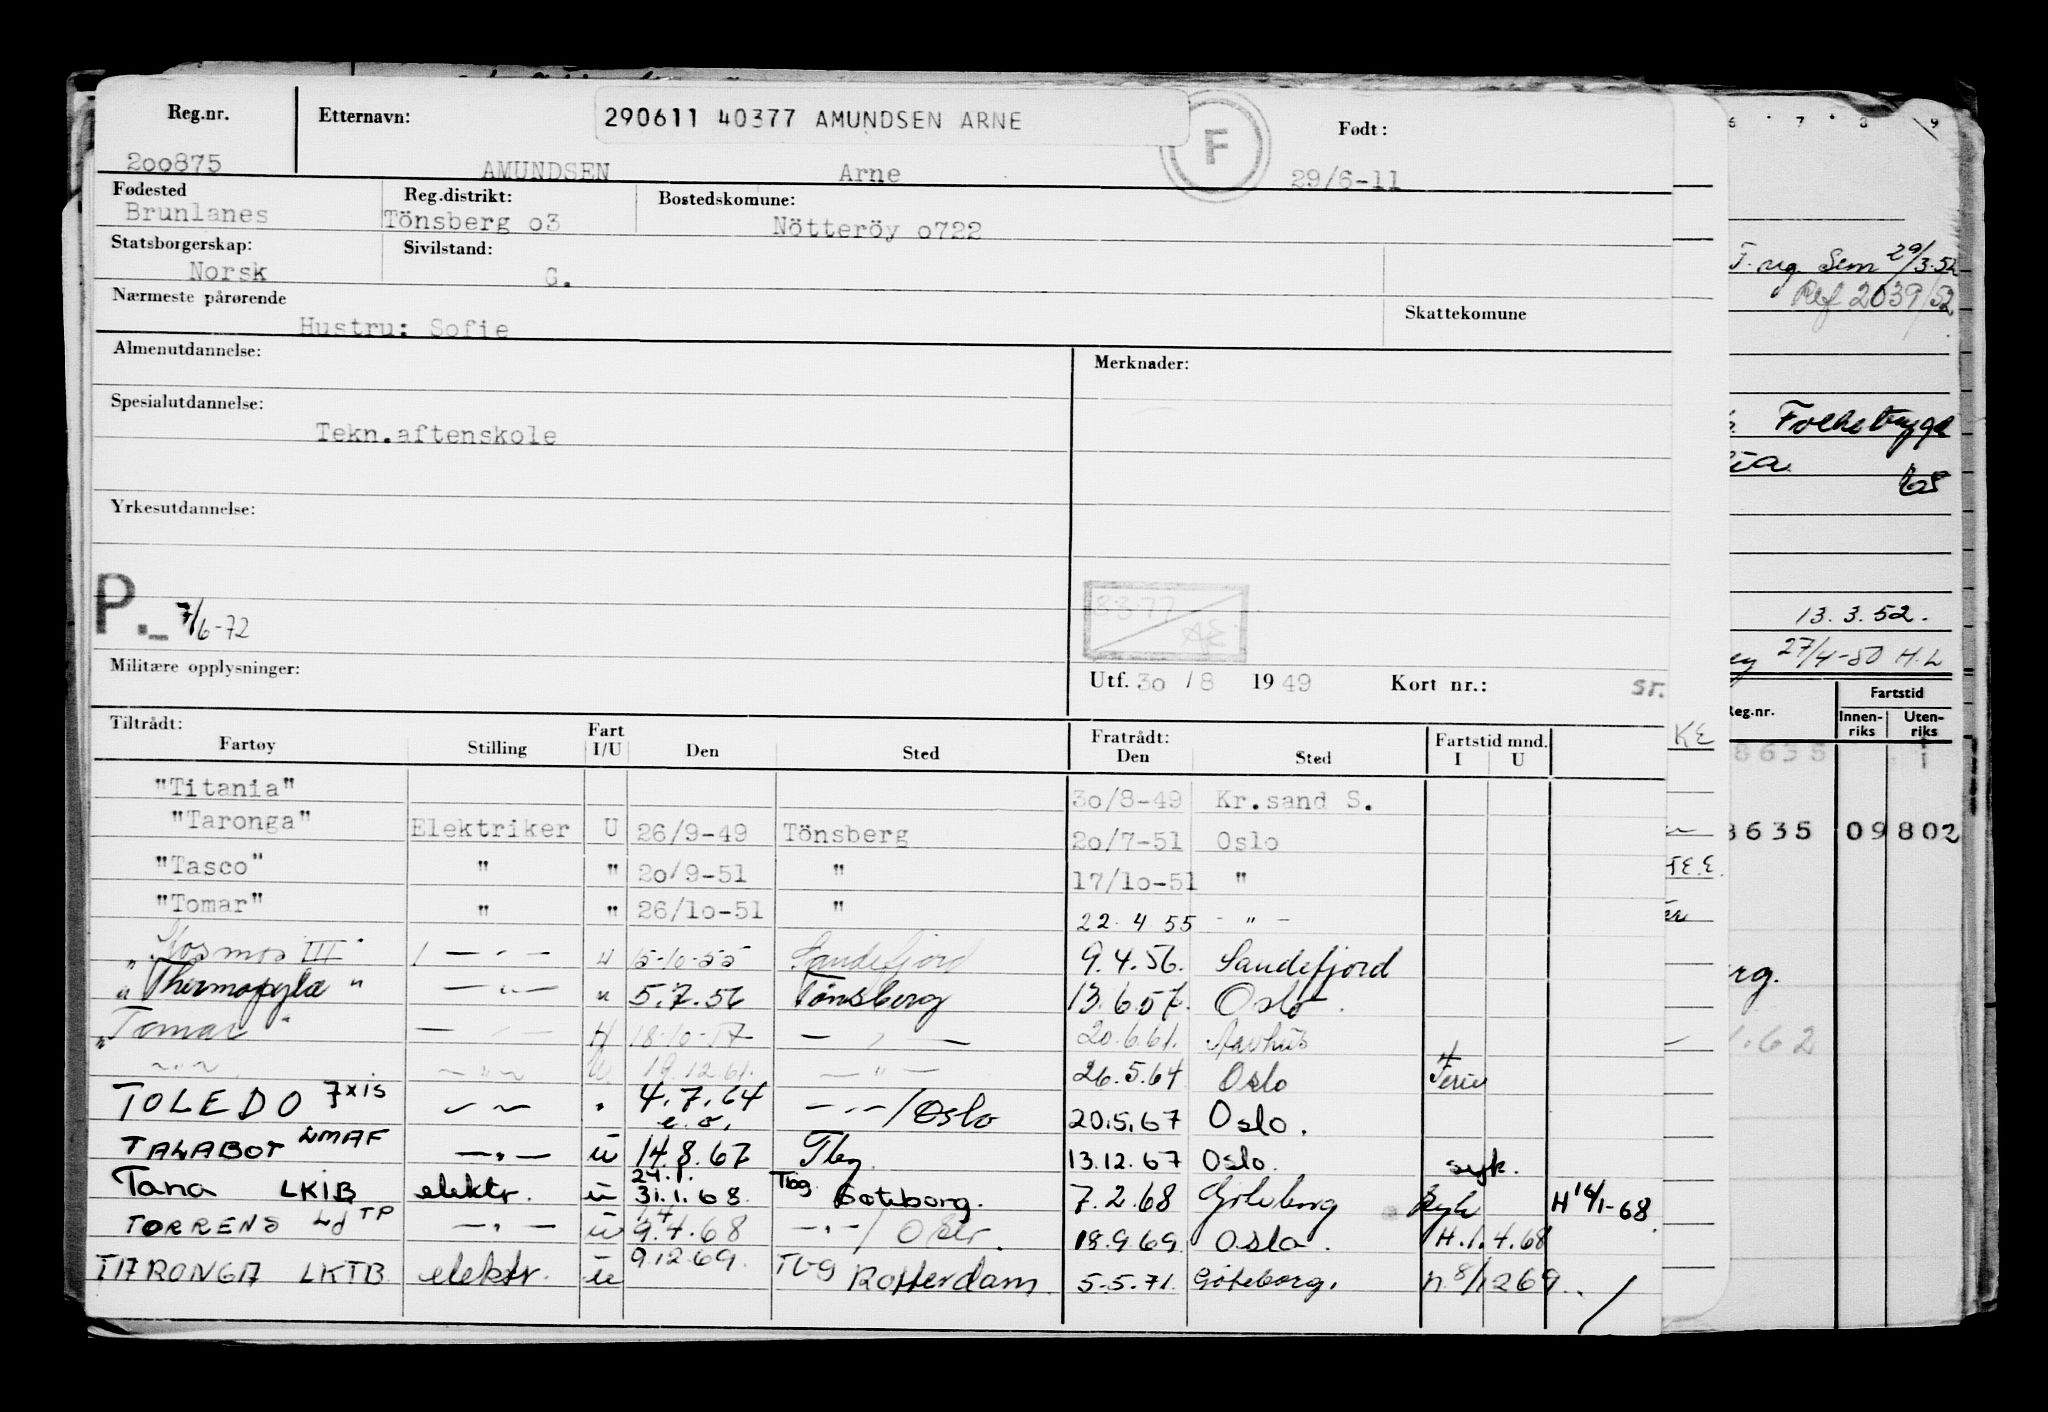 Reg.nr. Etternavn: 290611 40377 AMUNDSEN ARNE F Født:
200875 AMUNDSEN Arne 29/6-11
Fødested Reg.distrikt: Bostedskomune:
Brunlanes Tönsberg o3 Nötteröy o722
Statsborgerskap: Sivilstand:
Norsk G.
Nærmeste pårørende Skattekomune
Hustru: Sofie
Almenutdannelse: Merknader:
Spesialutdannelse:
Tekn.aftenskole
Yrkesutdannelse:
P.- 7/6-72
8.3.77
Militære opplysninger:
Utf. 3o / 8 1949 Kort nr.: ST.
Tiltrådt: Fratrådt: Fartstid mnd.
Fartøy Stilling Fart I/U Den Sted Den Sted I U
"Titania" 3o/8-49 Kr.sand S.
"Taronga" Elektriker U 26/9-49 Tönsberg 2o/7-51 Oslo
"Tasco" " " 2o/9-51 " 17/1o-51 "
"Tomar" " " 26/1o-51 " 22.4 55 - " -
"Kosmos III" - " - " 15-10-55 Sandefjord 9.4.56. Sandefjord
"Thermopylæ" - " - " 5.7.56 Tønsberg 13.6.57. Oslo.
"Tomar" - " - 18-10-57 - " - 20.6.61. Aarhus
- " - - " - U 19.12.61. - " - 26.5.64 Oslo Ferie
TOLEDO 7xis - " - " 4.7.64 - " - / Oslo 20.5.67 Oslo.
e.o.
TALABOT LMAF - " - u 14.8.67 Tbg. 13.12.67 Oslo. syk.
Tana LKIB elektr. u 24.1. 31.1.68. Tbg. Goteborg. 7.2.68 Göteborg syk H 16/1-68.
TORRENS Ld TP - " - u 9.4.68 - " - / Oslo. 18.9 69. Oslo. H.1.4.68
TARONGA LKTB elektr. u 9.12.69. TBG Rotterdam 5.5.71. Göteborg. n.8/1269..
6 7 8 9
F.reg. Sem 29/3.52
Ref 2039/52
Folketrygd
13.3.52.
27/4-50 H.L
Reg.nr. Fartstid
Innenriks Utenriks
KE
8635
8635 09802